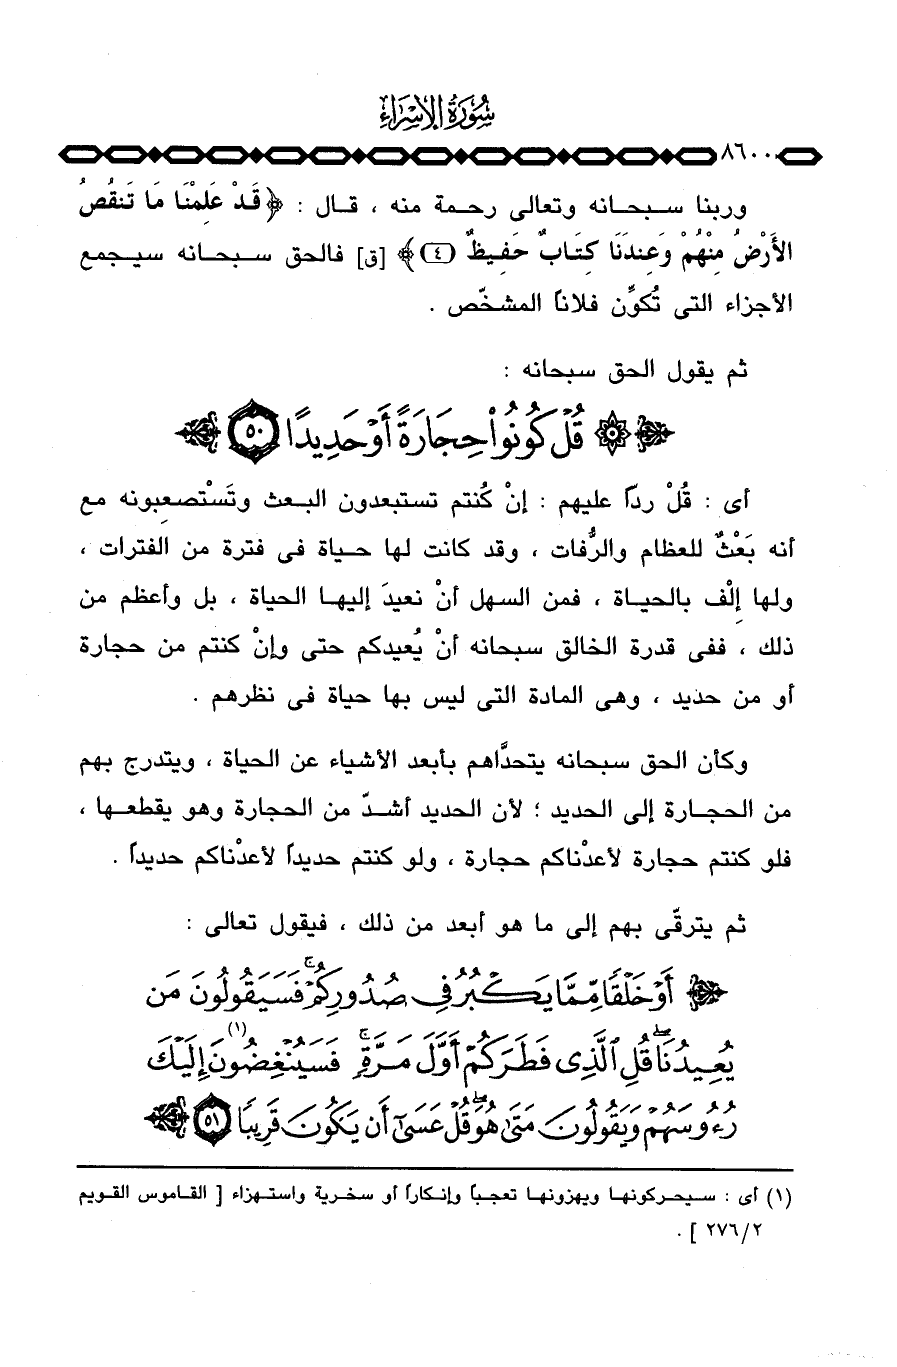 سُورَةُ الإِسْرَاءِ
٨٦٠٠
وربنا سبحانه وتعالى رحمة منه ، قال : ﴿ قَدْ عَلِمْنَا مَا تَنقُصُ
الأَرْضُ مِنْهُمْ وَعِندَنَا كِتَابٌ حَفِيظٌ (٤) ﴾ [ق] فالحق سبحانه سيجمع
الأجزاء التى تُكوِّن فلاناً المشخّص .
ثم يقول الحق سبحانه :
۞ قُلْ كُونُوا۟ حِجَارَةً أَوْ حَدِيدًا ٥٠
أى : قُلْ رداً عليهم : إنْ كُنتم تستبعدون البعث وتَسْتصعبونه مع
أنه بَعْثٌ للعظام والرُّفات ، وقد كانت لها حياة فى فترة من الفترات ،
ولها إلْف بالحياة ، فمن السهل أنْ نعيدَ إليها الحياة ، بل وأعظم من
ذلك ، ففى قدرة الخالق سبحانه أنْ يُعيدكم حتى وإنْ كنتم من حجارة
أو من حديد ، وهى المادة التى ليس بها حياة فى نظرهم .
وكأن الحق سبحانه يتحدَّاهم بأبعد الأشياء عن الحياة ، ويتدرج بهم
من الحجارة إلى الحديد ؛ لأن الحديد أشدّ من الحجارة وهو يقطعها ،
فلو كنتم حجارة لأعدْناكم حجارة ، ولو كنتم حديداً لأعدْناكم حديداً .
ثم يترقّى بهم إلى ما هو أبعد من ذلك ، فيقول تعالى :
أَوْ خَلْقًا مِّمَّا يَكْبُرُ فِى صُدُورِكُمْ ۚ فَسَيَقُولُونَ مَن
يُعِيدُنَا ۖ قُلِ ٱلَّذِى فَطَرَكُمْ أَوَّلَ مَرَّةٍ ۚ فَسَيُنْغِضُونَ (١) إِلَيْكَ
رُءُوسَهُمْ وَيَقُولُونَ مَتَىٰ هُوَ ۖ قُلْ عَسَىٰٓ أَن يَكُونَ قَرِيبًا ٥١
(١) أى : سيحركونها ويهزونها تعجباً وإنكاراً أو سخرية واستهزاء [ القاموس القويم
٢٧٦/٢ ] .